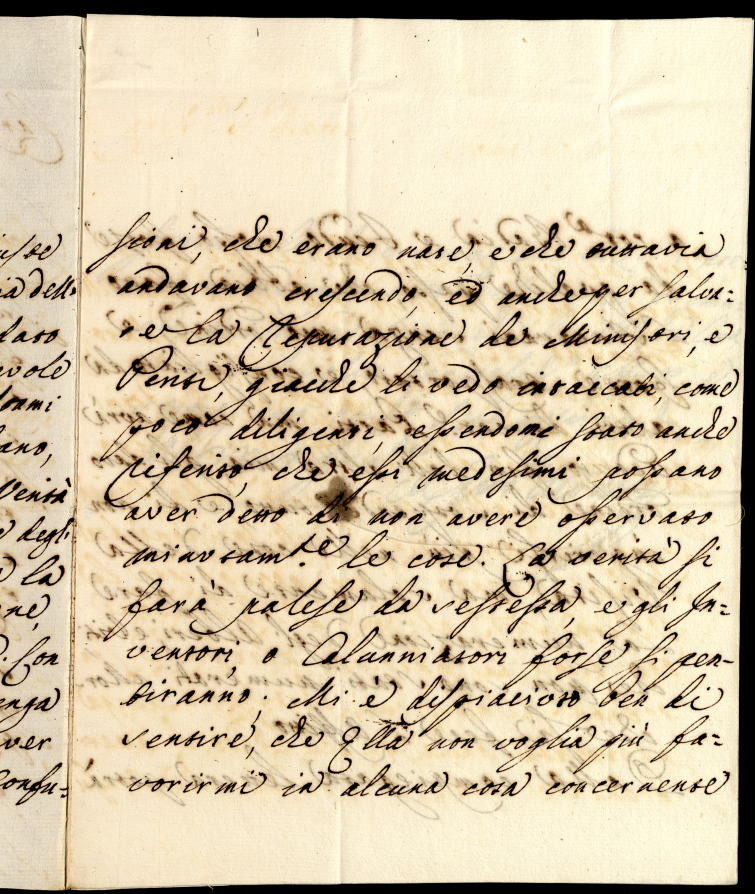 iuste
ia dell=
dato
evole
stami
ano,
Verità
e degl'
e la
ne,
. Con
enga
ver
Confu=
sioni, che erano nate, e che tuttavia
andavano crescendo, ed anche per salva=
re la Reputazione de Ministri, e
Periti, giacche li vedo intaccati, come
poco diligenti, essendomi stato anche
riferito, che essi medesimi possano
aver detto di non avere osservato
minutam.te le cose. La verità si
farà palese da sestessa, e gli In=
ventori, o Calunniatori forse si pen=
tiranno. Mi è dispiaciuto ben di
sentire, che Ella non voglia più fa=
vorirmi in alcuna cosa concernente